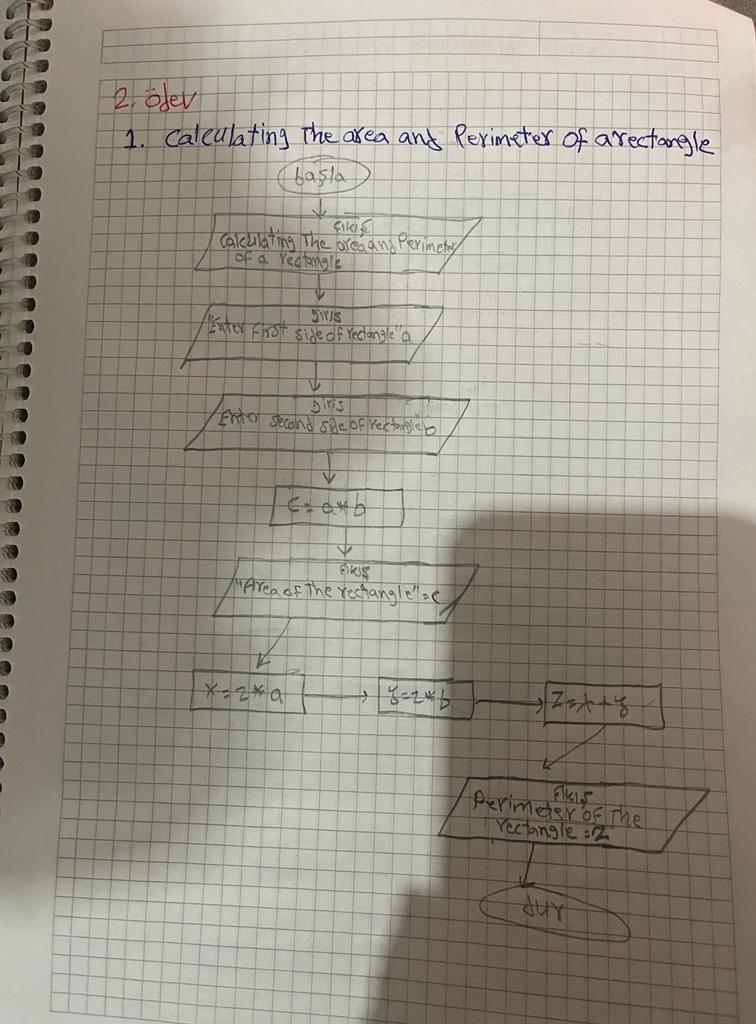 2. ödev
1. Calculating The area and Perimeter of a rectangle
başla
Çıkış
Calculating The area and Perimeter
of a rectangle
Giriş
"Enter first side of rectangle" a
Giriş
"Enter second side of rectangle" b
c = a * b
Çıkış
"Area of The rectangle" = c
x = 2 * a
y = 2 * b
z = x + y
Çıkış
Perimeter of The
rectangle = z
dur